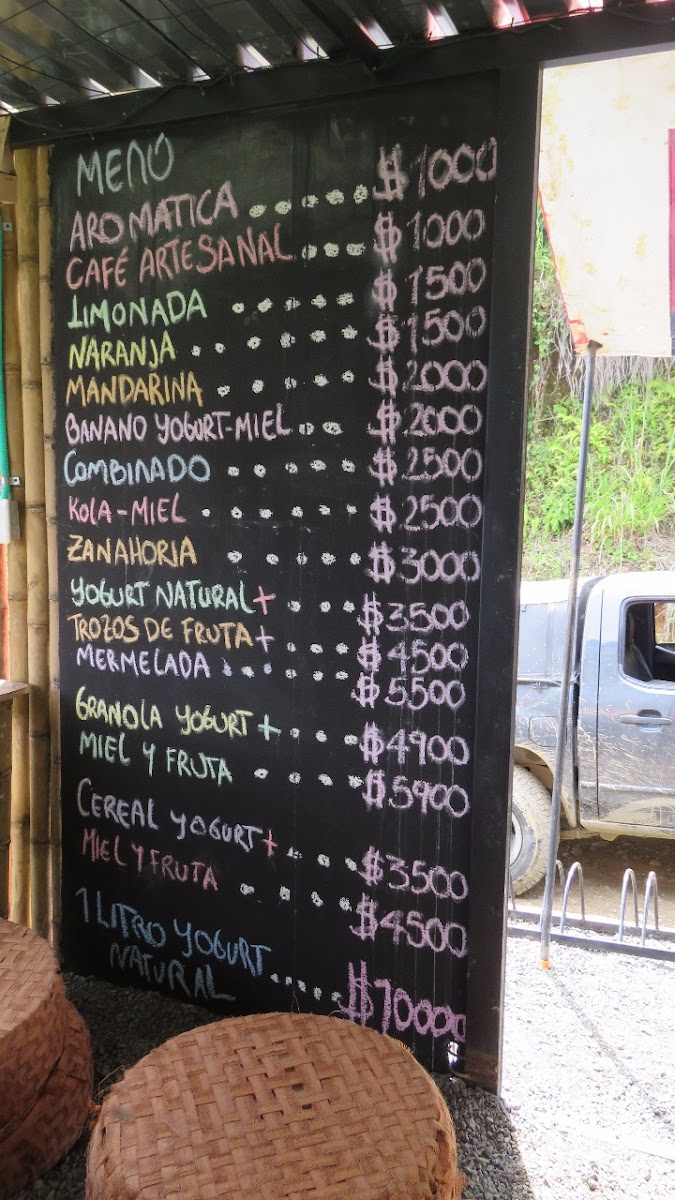 MENÚ
AROMATICA ..... $1000
CAFÉ ARTESANAL ... $1000
LIMONADA ..... $1500
NARANJA ..... $1500
MANDARINA ..... $2000
BANANO YOGURT-MIEL ... $2000
COMBINADO ..... $2500
KOLA-MIEL ..... $2500
ZANAHORIA ..... $3000
YOGURT NATURAL+ ... $3500
TROZOS DE FRUTA+ ... $4500
MERMELADA ...... $5500
GRANOLA YOGURT+ ... $4900
MIEL Y FRUTA .... $5900
CEREAL YOGURT+ ... $3500
MIEL Y FRUTA .... $4500
1 LITRO YOGURT
NATURAL ..... $10000